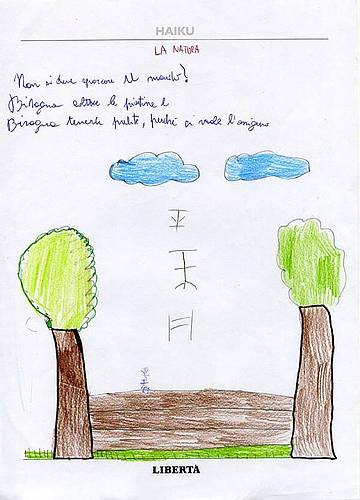 HAIKU
LA NATURA
Non si deve sporcare il mondo!
Bisogna
Bisogna tenerle pulite, perché ci vuole l'ossigeno
LIBERTÀ